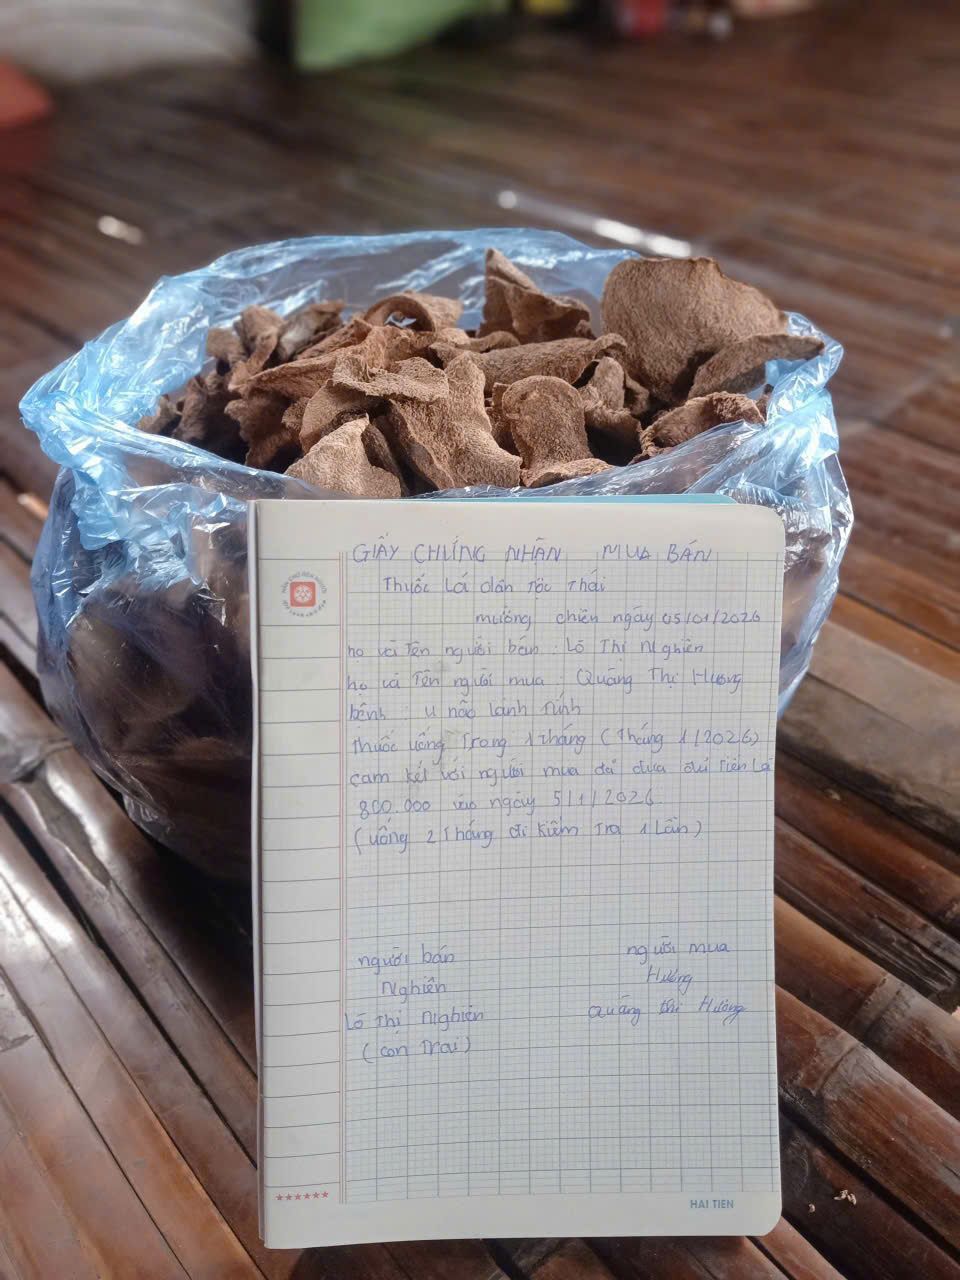 GIẤY CHỨNG NHẬN MUA BÁN
Thuốc lá dân tộc thái
mường chiên ngày 05/01/2026
họ và tên người bán : Lò Thị Nghiên
họ và tên người mua : Quàng Thị Hương
bệnh : u não lành tính
thuốc uống trong 1 tháng (tháng 1/2026)
cam kết với người mua đã đưa đủ tiền là
800.000 vào ngày 5/1/2026
(uống 2 tháng đi kiểm tra 1 lần)
người bán
người mua
Nghiên
Hương
Lò Thị Nghiên
Quàng thị Hương
(con trai)
HAI TIEN